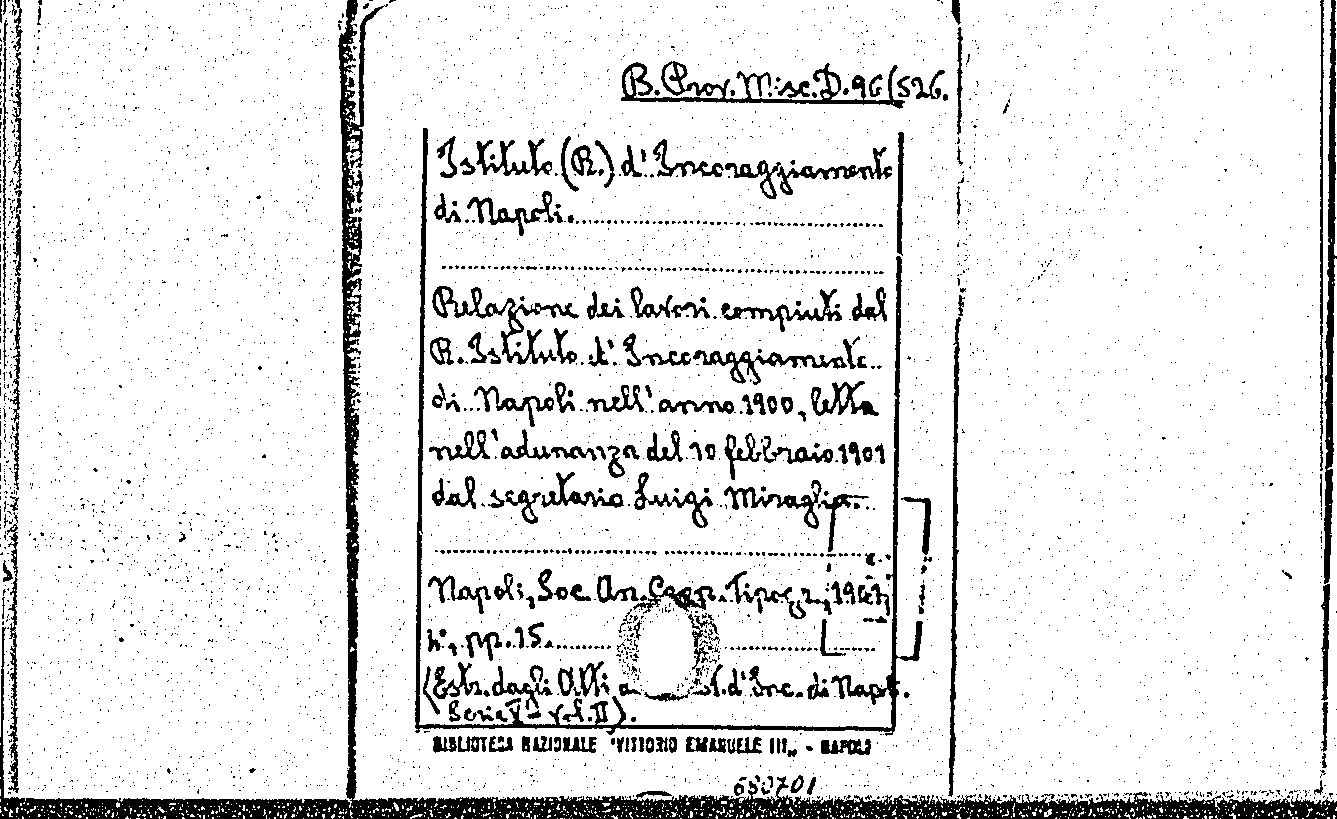 B. Prov. Misc. D. 96(526.
Istituto (R.) d'Incoraggiamento
di Napoli.
Relazione dei lavori compiuti dal
R. Istituto d'Incoraggiamento
di Napoli nell'anno 1900, letta
nell'adunanza del 10 febbraio 1901
dal segretario Luigi Miraglia.
Napoli, Soc. An. Coop. Tipogr., 1901,
4°, pp. 15.
(Estr. dagli Atti d'Inc. di Nap.
Serie V - vol. II).
BIBLIOTECA NAZIONALE "VITTORIO EMANUELE III„ - NAPOLI
680701